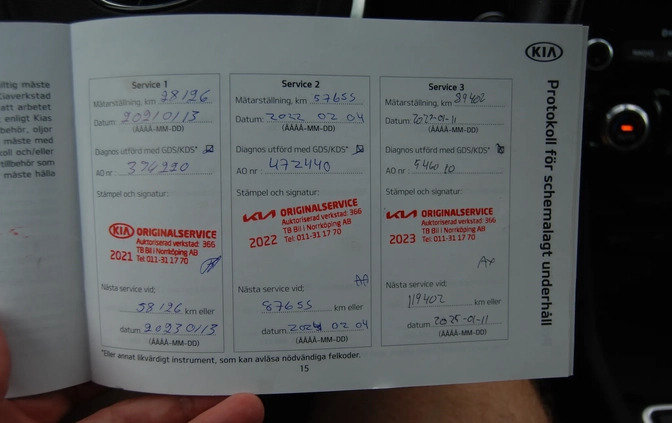 lltig måste
iaverkstad
att arbetet
enligt Kias
behör, oljor
måste med
oll och/eller
tillbehör som
måste hålla
KIA
Protokoll för schemalagt underhåll
Service 1
Mätarställning, km 28126
Datum: 20210113
(ÅÅÅÅ-MM-DD)
Diagnos utförd med GDS/KDS*
AO nr: 374220
Stämpel och signatur:
KIA ORIGINALSERVICE
Auktoriserad verkstad: 366
TB Bil i Norrköping AB
2021 Tel: 011-31 17 70
Nästa service vid:
58126 km eller
datum: 20230113
(ÅÅÅÅ-MM-DD)
Service 2
Mätarställning, km 57655
Datum: 2022 02 04
(ÅÅÅÅ-MM-DD)
Diagnos utförd med GDS/KDS*
AO nr: 472440
Stämpel och signatur:
KIA ORIGINALSERVICE
Auktoriserad verkstad: 366
TB Bil i Norrköping AB
2022 Tel: 011-31 17 70
Nästa service vid:
87655 km eller
datum: 2024 02 04
(ÅÅÅÅ-MM-DD)
Service 3
Mätarställning, km 89402
Datum: 2023-01-11
(ÅÅÅÅ-MM-DD)
Diagnos utförd med GDS/KDS*
AO nr: 546010
Stämpel och signatur:
KIA ORIGINALSERVICE
Auktoriserad verkstad: 366
TB Bil i Norrköping AB
2023 Tel: 011-31 17 70
Nästa service vid:
119402 km eller
datum: 2025-01-11
(ÅÅÅÅ-MM-DD)
*Eller annat likvärdigt instrument, som kan avläsa nödvändiga felkoder.
15